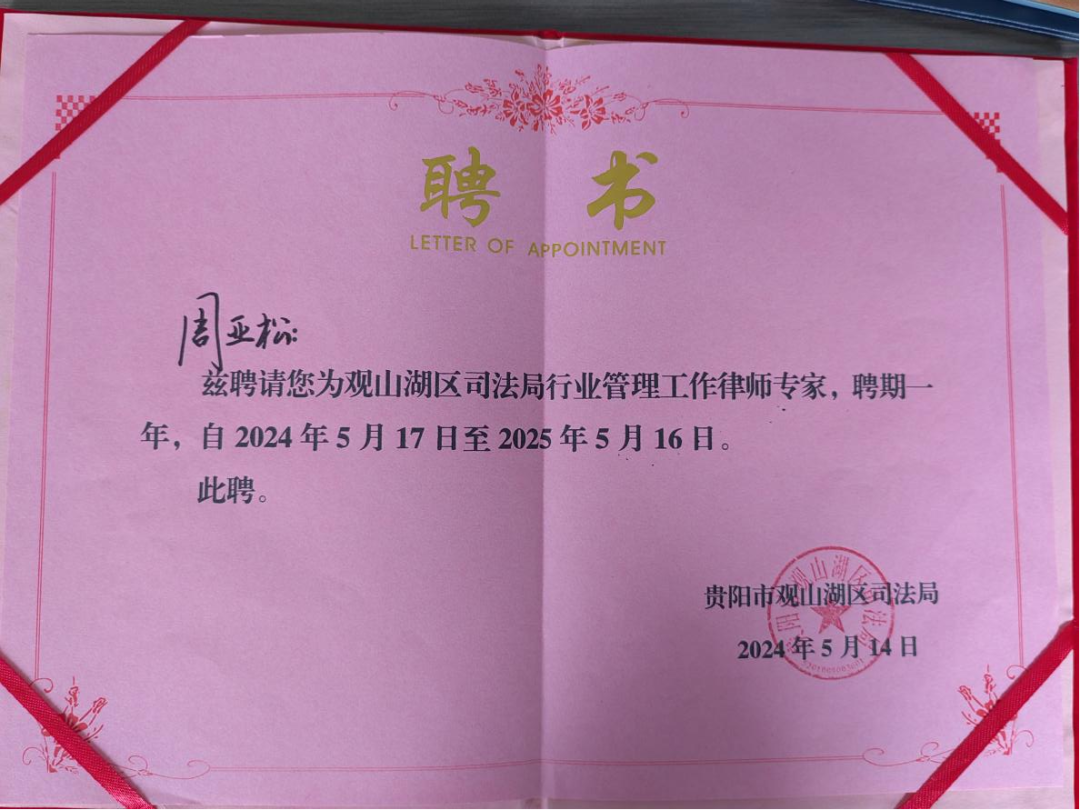 聘书
LETTER OF APPOINTMENT
周亚松:
兹聘请您为观山湖区司法局行业管理工作律师专家，聘期一
年，自 2024 年 5 月 17 日至 2025 年 5 月 16 日。
此聘。
贵阳市观山湖区司法局
2024 年 5 月 14 日